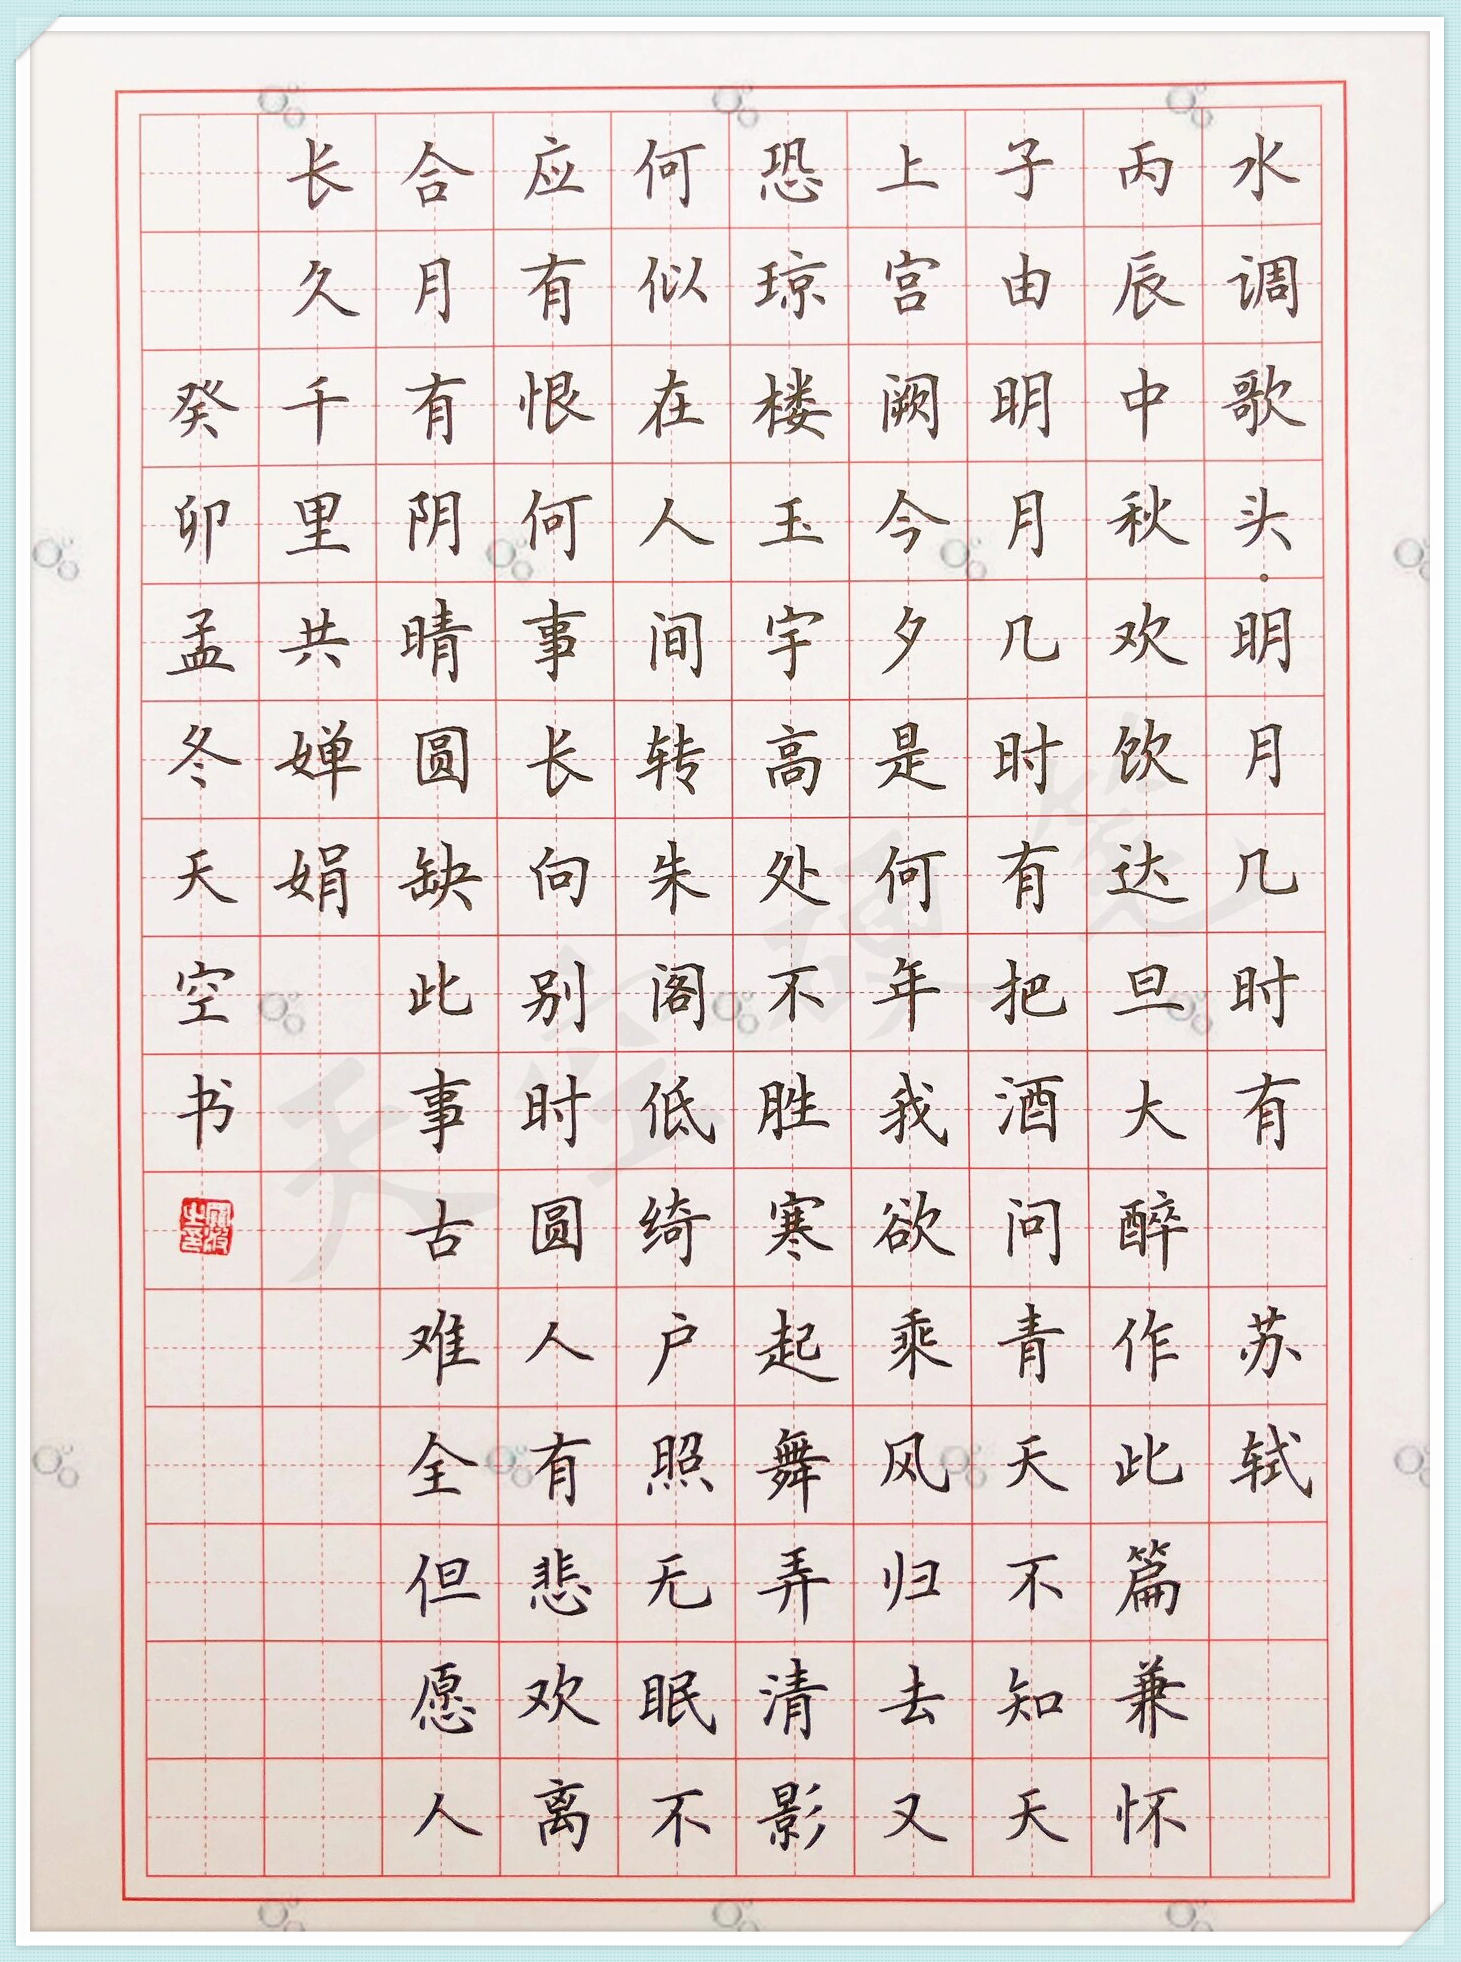 水调歌头·明月几时有 苏轼
丙辰中秋欢饮达旦大醉作此篇兼怀
子由明月几时有把酒问青天不知天
上宫阙今夕是何年我欲乘风归去又
恐琼楼玉宇高处不胜寒起舞弄清影
何似在人间转朱阁低绮户照无眠不
应有恨何事长向别时圆人有悲欢离
合月有阴晴圆缺此事古难全但愿人
长久千里共婵娟
癸卯孟冬天空书
天空硬笔